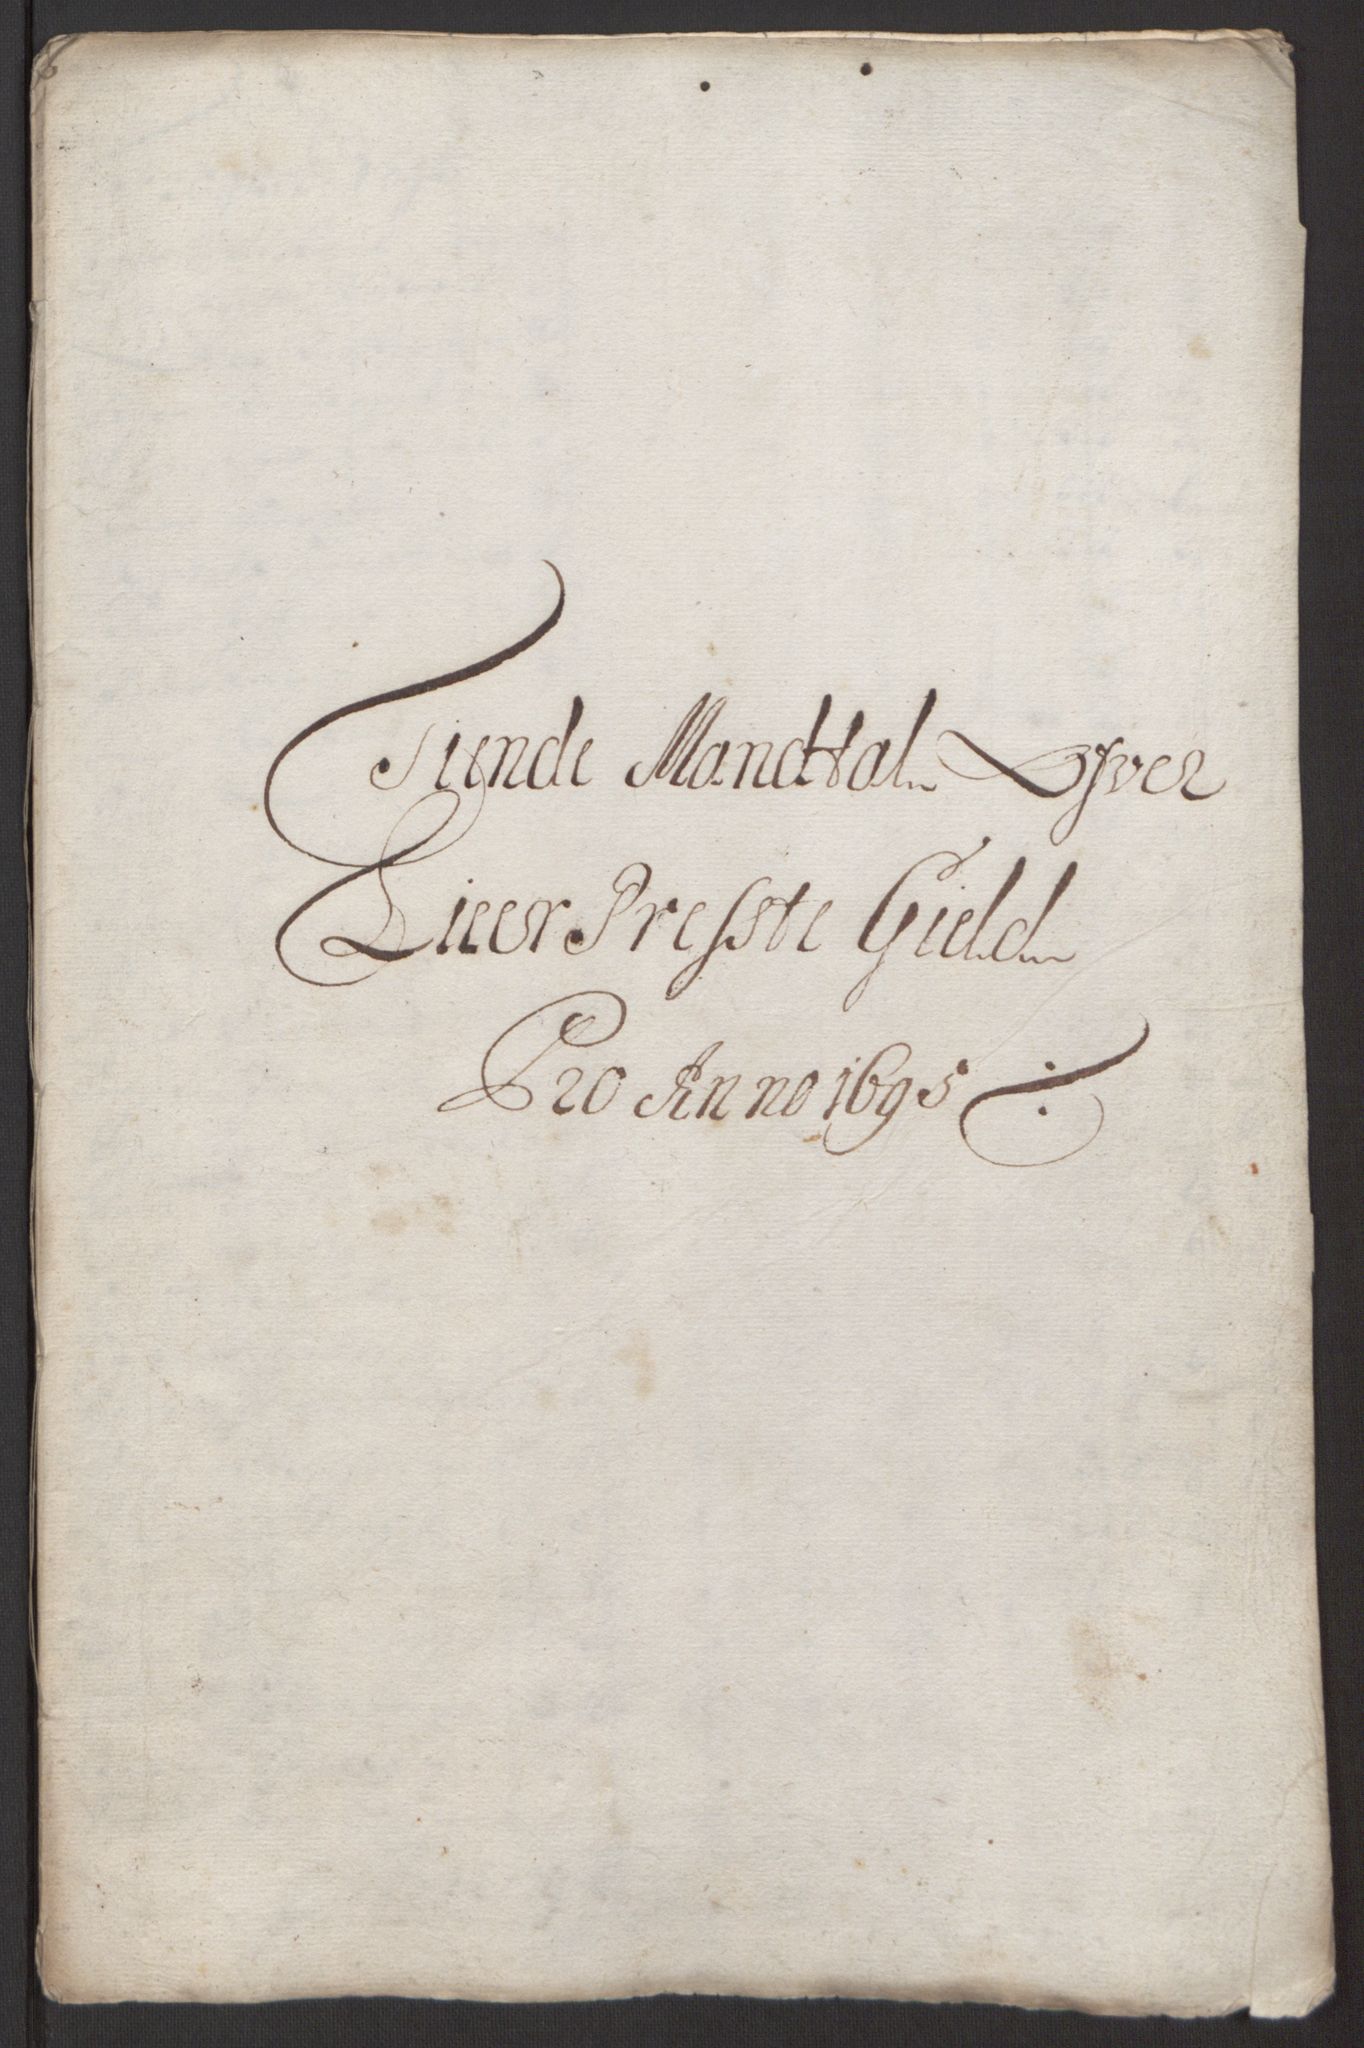 Tiende Mandtal Ofver
Lieer Presste Gield
Pro Anno 1695